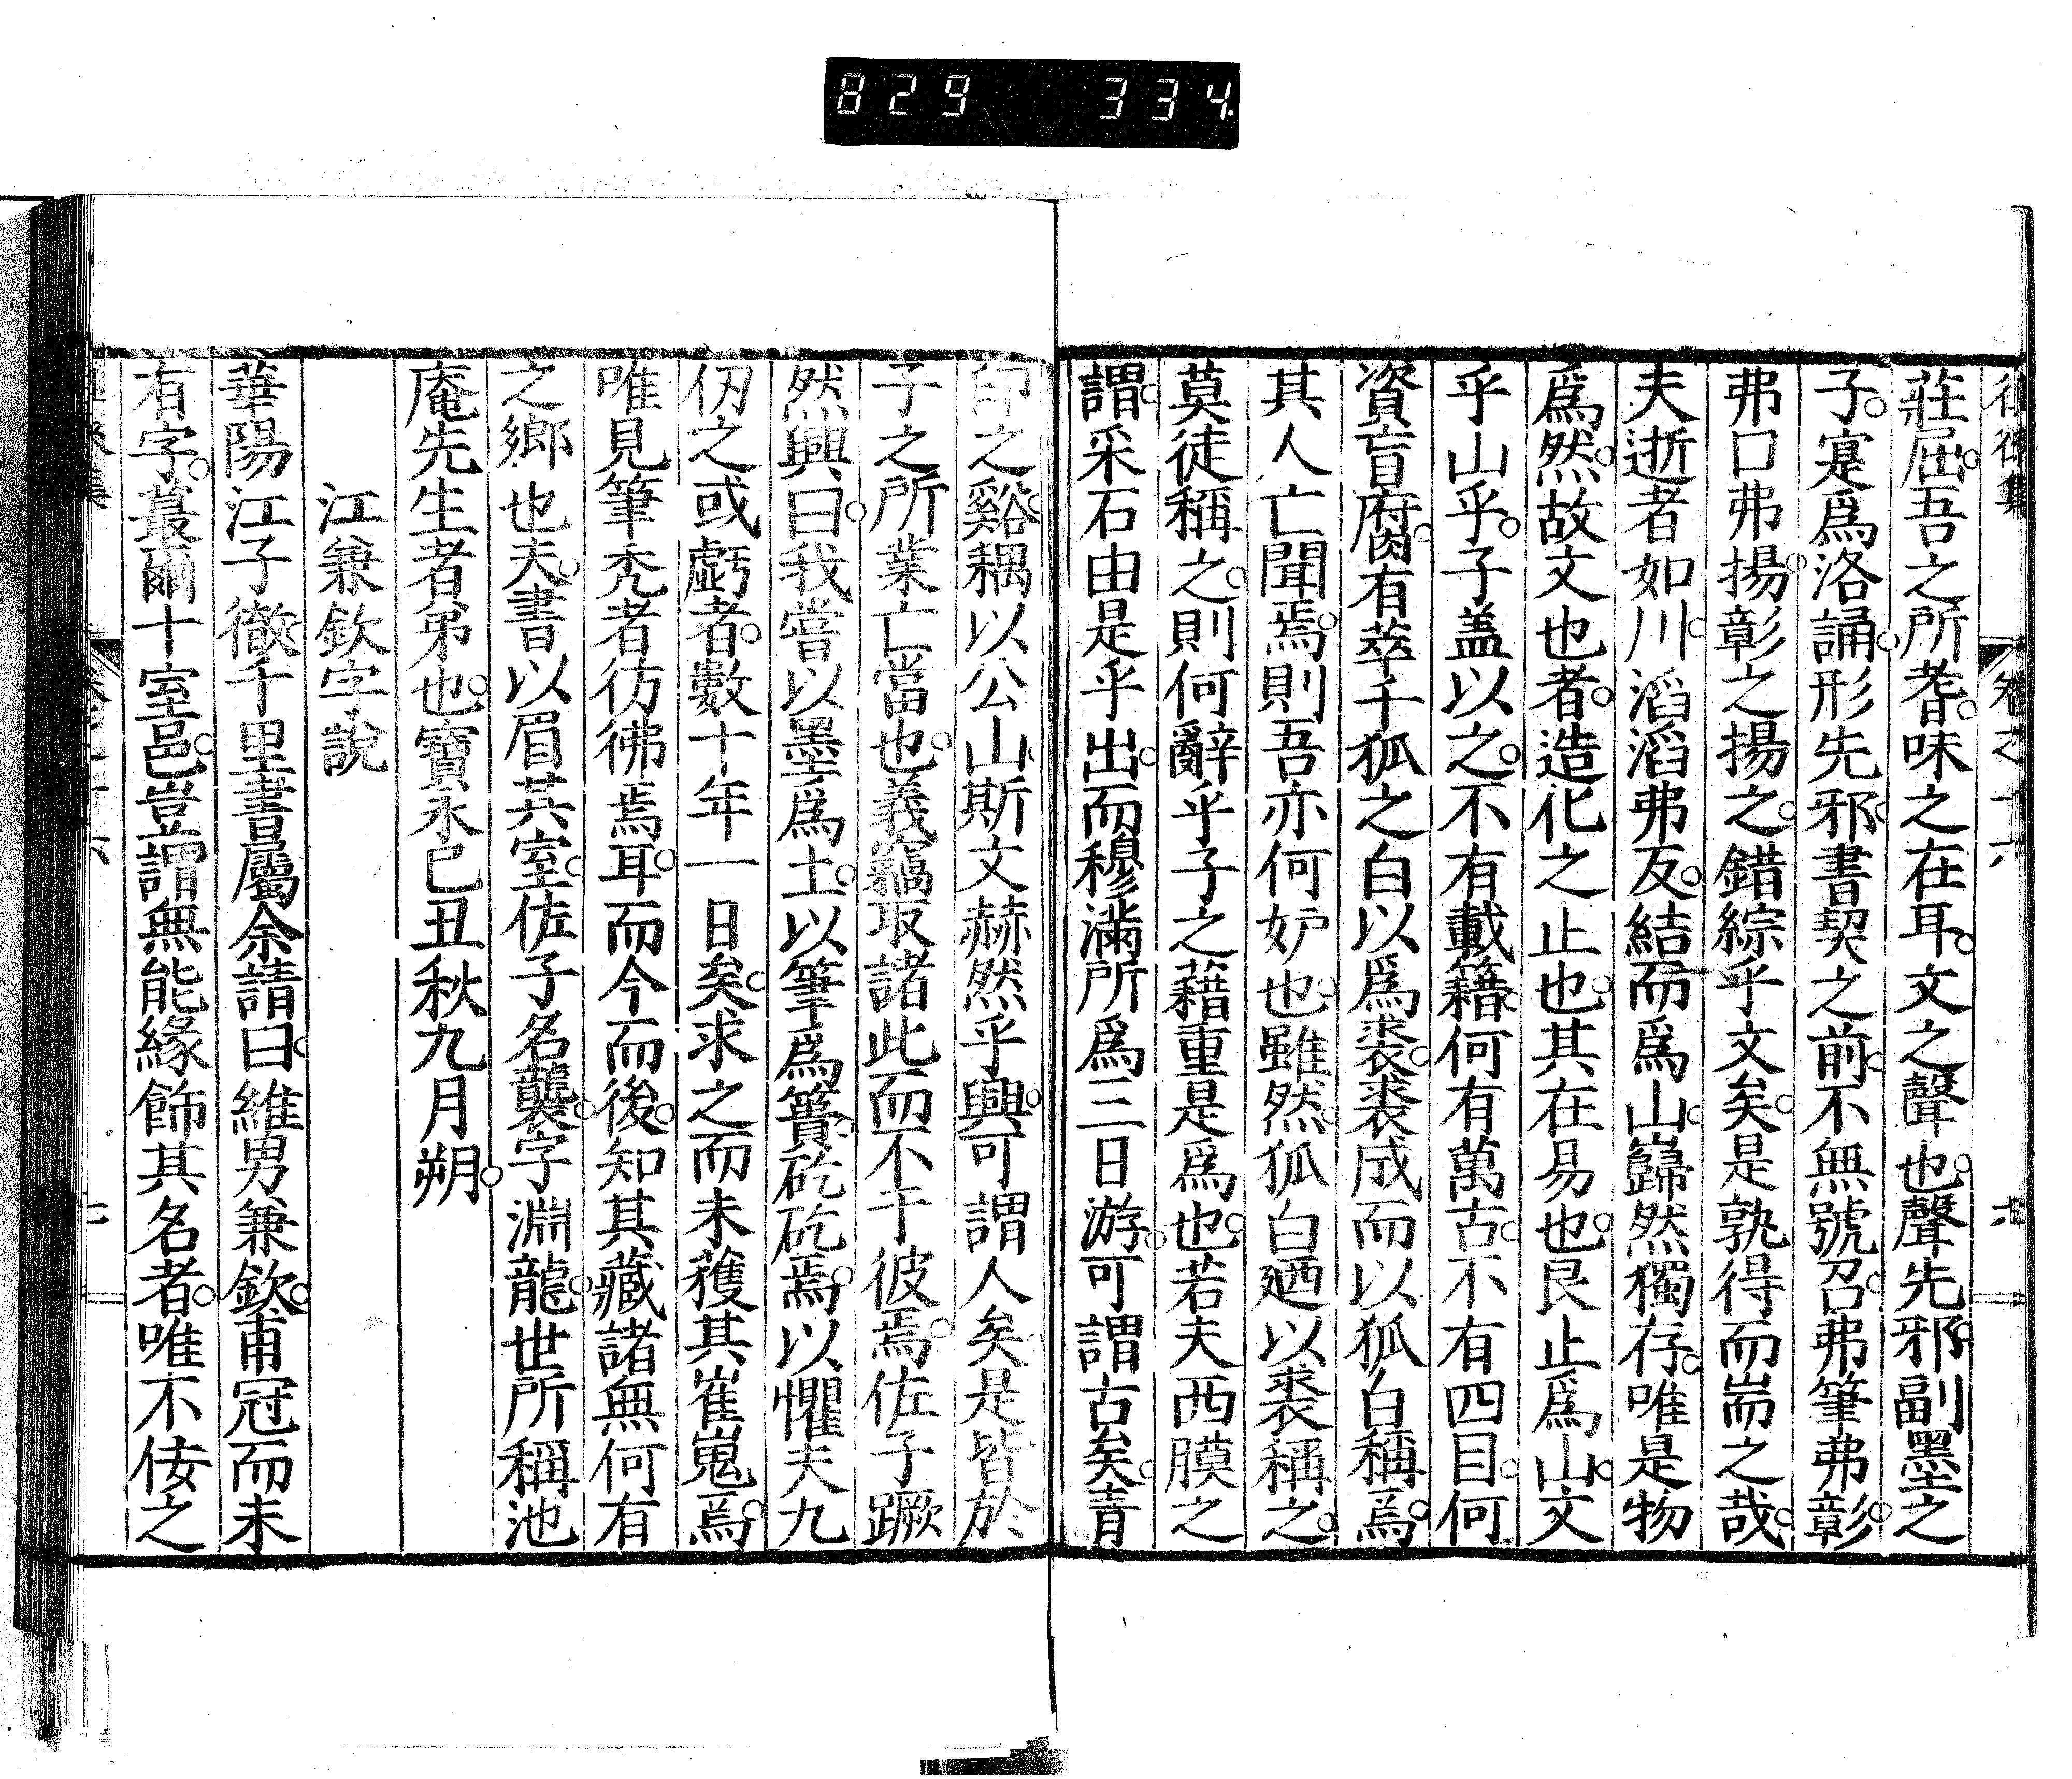 829 334.
徂徠集 卷之十六 六
莊屈。吾之所耆。味之在耳。文之聲也。聲先邪。副墨之
子。寔爲洛誦。形先邪。書契之前。不無號召。弗筆弗彰。
弗口弗揚。彰之揚之。錯綜乎文矣。是孰得而耑之哉。
夫逝者如川。滔滔弗反。結而爲山。巋然獨存。唯是物
爲然。故文也者。造化之止也。其在易也。艮止爲山。文
乎山乎。子蓋以之。不有載籍。何有萬古。不有四目。何
資盲腐。有萃千狐之白以爲裘。裘成而以狐白稱焉。
其人亡聞焉。則吾亦何妒也。雖然。狐白廼以裘稱之。
莫徒稱之。則何辭乎子之藉重是爲也。若夫西膜之
謂。采石由是乎出。而穆滿所爲三日游。可謂古矣。青
印之谿。耦以公山。斯文赫然乎興。可謂人矣。是皆於
子之所業亡當也。義竊取諸此而不于彼焉。佐子蹶
然興曰。我嘗以墨爲土。以筆爲簣。矻矻焉。以懼夫九
仞之或虧者。數十年一日矣。求之而未獲其崔嵬焉。
唯見筆禿者彷彿焉耳。而今而後。知其藏諸無何有
之鄉也夫。書以眉其室。佐子名襲。字淵龍。世所稱池
庵先生者弟也。寶永己丑秋九月朔。
江兼欽字說
華陽江子徹。千里書屬余請曰。維男兼欽。甫冠而未
有字。蕞爾十室邑。豈謂無能緣飾其名者。唯不佞之
徂徠集 卷之十六 七